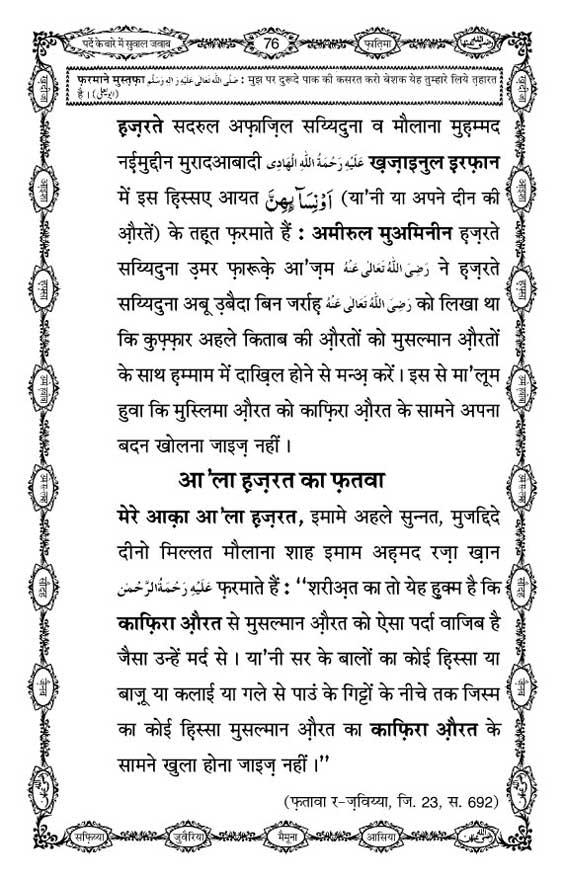 पर्दे के बारे में सुवाल जवाब
76
फ़ातिमा
फ़रमाने मुस्तफ़ा صَلَّى اللهُ تَعَالٰى عَلَيْهِ وَاٰلِهٖ وَسَلَّم : मुझ पर दुरूदे पाक की कसरत करो बेशक येह तुम्हारे लिये त़हारत
है । (ابو یعلی)
ह़ज़रते सदरुल अफ़ाज़िल सय्यिदुना व मौलाना मुह़म्मद
नई़मुद्दीन मुरादआबादी عَلَيْهِ رَحْمَةُ اللهِ الْهَادِى ख़ज़ाइनुल इ़रफ़ान
में इस हिस्सए आयत اَوْنِسَآىِٕهِنَّ (या'नी या अपने दीन की
औ़रतें) के तह़त फ़रमाते हैं : अमीरुल मुअमिनीन ह़ज़रते
सय्यिदुना उ़मर फ़ारूके़ आ'ज़म رَضِىَ اللهُ تَعَالٰى عَنْهُ ने ह़ज़रते
सय्यिदुना अबू उ़बैदा बिन जर्राह़ رَضِىَ اللهُ تَعَالٰى عَنْهُ को लिखा था
कि कुफ़्फ़ार अहले किताब की औ़रतों को मुसल्मान औ़रतों
के साथ ह़म्माम में दाख़िल होने से मन्अ़ करें । इस से मा'लूम
हुवा कि मुस्लिमा औ़रत को काफ़िरा औ़रत के सामने अपना
बदन खोलना जाइज़ नहीं ।
आ'ला ह़ज़रत का फ़तवा
मेरे आक़ा आ'ला ह़ज़रत, इमामे अहले सुन्नत, मुजद्दिदे
दीनो मिल्लत मौलाना शाह इमाम अह़मद रज़ा ख़ान
عَلَيْهِ رَحْمَةُ الرَّحْمٰن फ़रमाते हैं : “शरीअ़त का तो येह हुक्म है कि
काफ़िरा औ़रत से मुसल्मान औ़रत को ऐसा पर्दा वाजिब है
जैसा उन्हें मर्द से । या'नी सर के बालों का कोई हिस्सा या
बाज़ू या कलाई या गले से पाउं के गिट्टों के नीचे तक जिस्म
का कोई हिस्सा मुसल्मान औ़रत का काफ़िरा औ़रत के
सामने खुला होना जाइज़ नहीं ।”
(फ़तावा र-ज़विय्या, जि. 23, स. 692)
सफ़िय्या
जुवैरिया
मैमूना
आसिया